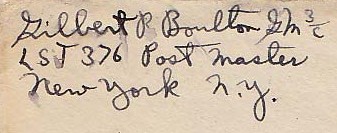 Gilbert P. Boulton GM 3/c
LST 376 Post Master
New York N.Y.